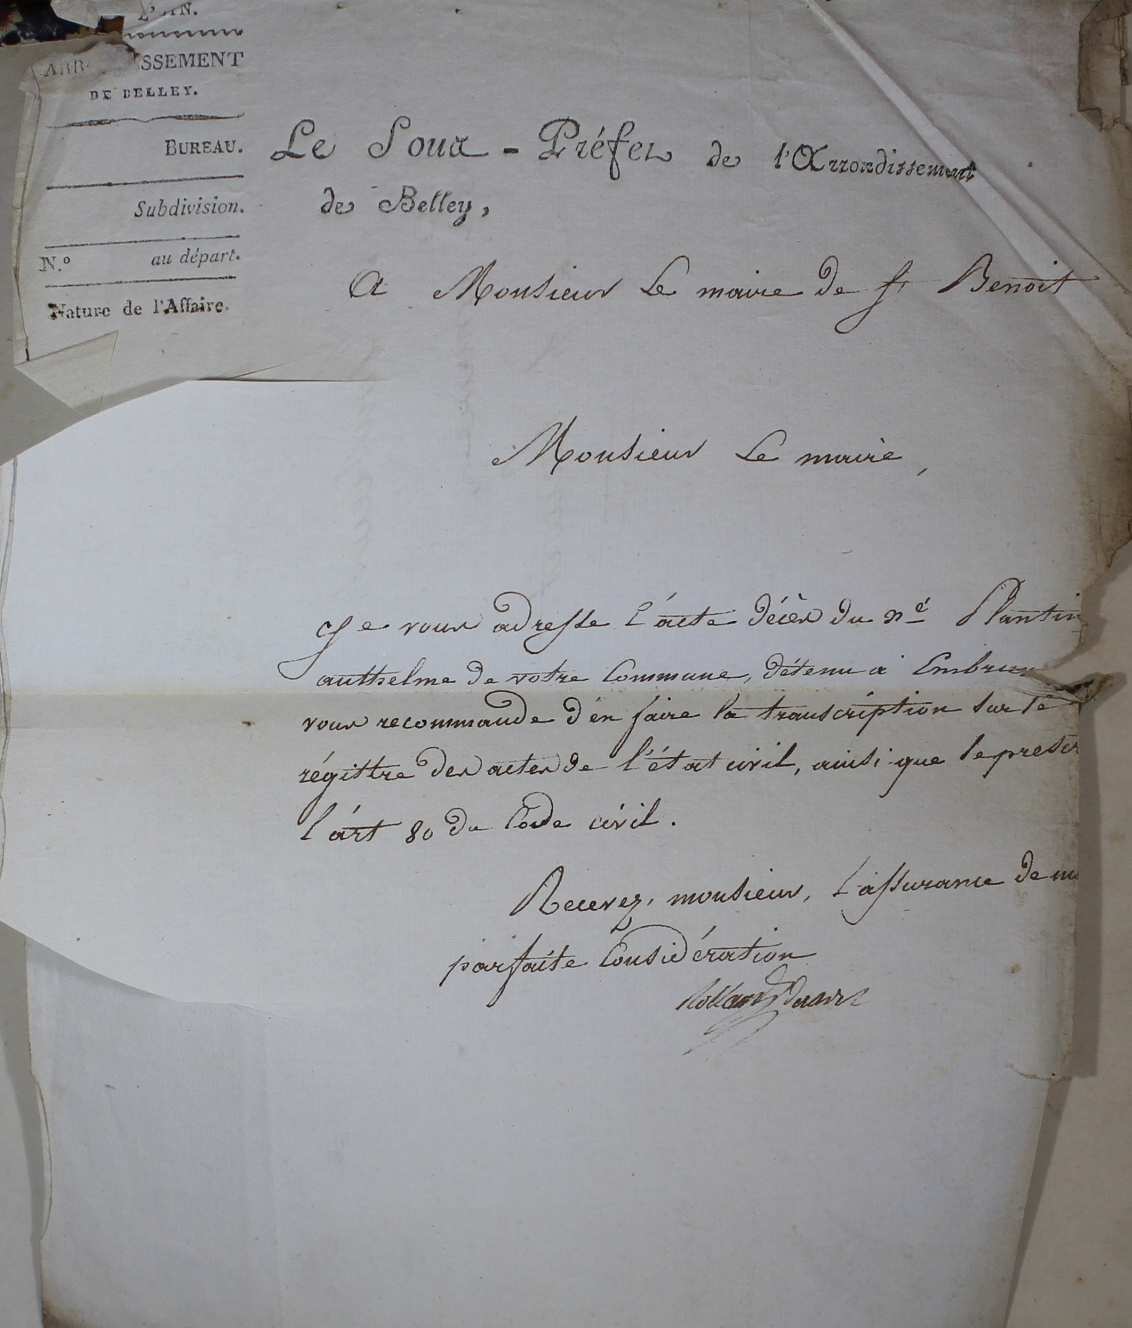 L'AIN.
ARR SSEMENT
DE BELLEY.
BUREAU.
Subdivision.
N.º au départ.
Nature de l'Affaire.
Le Sous-Préfet de l'Arrondissement
de Belley,
A Monsieur Le maire de St Benoit
Monsieur Le maire,
Je vous adresse l'acte décès du né Plantin
anthelme de votre Commune, détenu à Embrun
vous recommande d'en faire la transcription sur le
régittre des actes de l'état civil, ainsi que le prescr
l'art 80 du Code civil.
Recevez, monsieur, l'assurance de ma
parfaite Considération